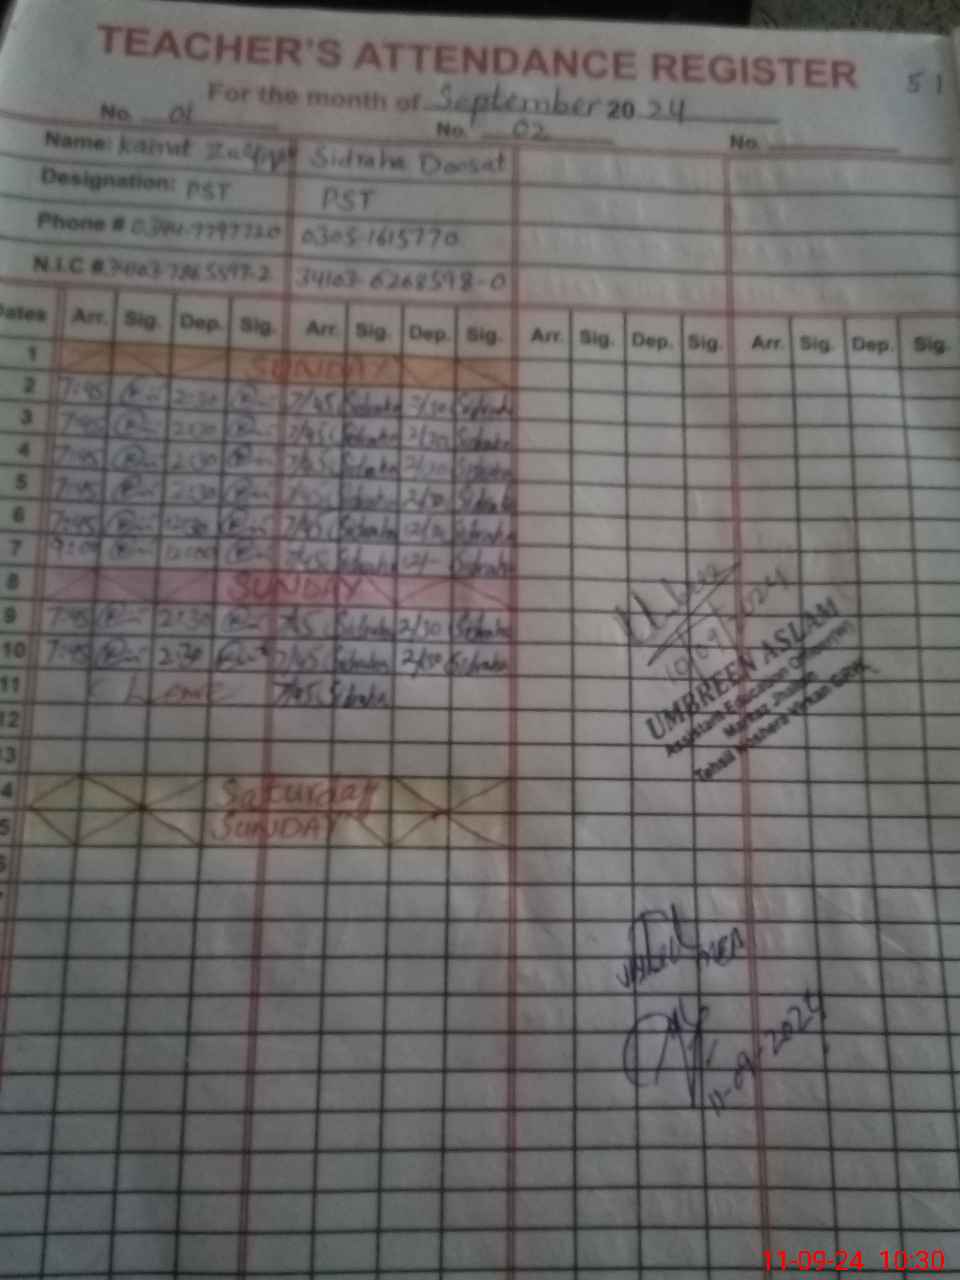 TEACHER'S ATTENDANCE REGISTER 51
For the month of September 2024
No. 01 No. 02 No.
Name: Kainat Sidraha Doosat
Designation: PST PST
Phone # 0305-1615770
N.I.C # 34103-6268598-0
Dates Arr. Sig. Dep. Sig. Arr. Sig. Dep. Sig. Arr. Sig. Dep. Sig. Arr. Sig. Dep. Sig.
1 SUNDAY
2 7:45 2:30 7/45 Sidraha 2/30 Sidraha
3 7:45 2:30 7/45 Sidraha 2/30 Sidraha
4 7:45 2:30 7/45 Sidraha 2/30 Sidraha
5 7:45 2:30 7/45 Sidraha 2/30 Sidraha
6 7:45 12:30 7/45 Sidraha 12/30 Sidraha
7 9:00 12:00 7/45 Sidraha 12/- Sidraha
8 SUNDAY
9 7:45 2:30 7/45 Sidraha 2/30 Sidraha
10 7:45 2:30 7/45 Sidraha 2/30 Sidraha
11 Leave 7/45 Sidraha
12
13
4 Saturday
5 SUNDAY
10/09/2024
UMBREEN ASLAM
Assistant Education Officer
Markaz
Tehsil Noshera Virkan GRW.
MEA
11-09-2024
11-09-24 10:30